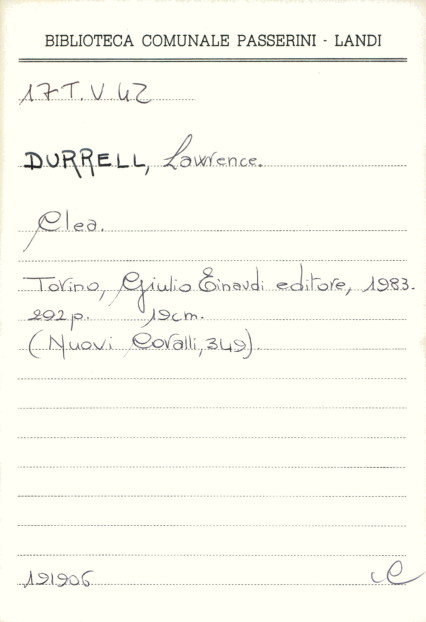 BIBLIOTECA COMUNALE PASSERINI - LANDI
17T.V 42
DURRELL, Lawrence.
Clea.
Torino, Giulio Einaudi editore, 1983.
292p. 19cm.
(Nuovi Coralli, 349).
191906 C